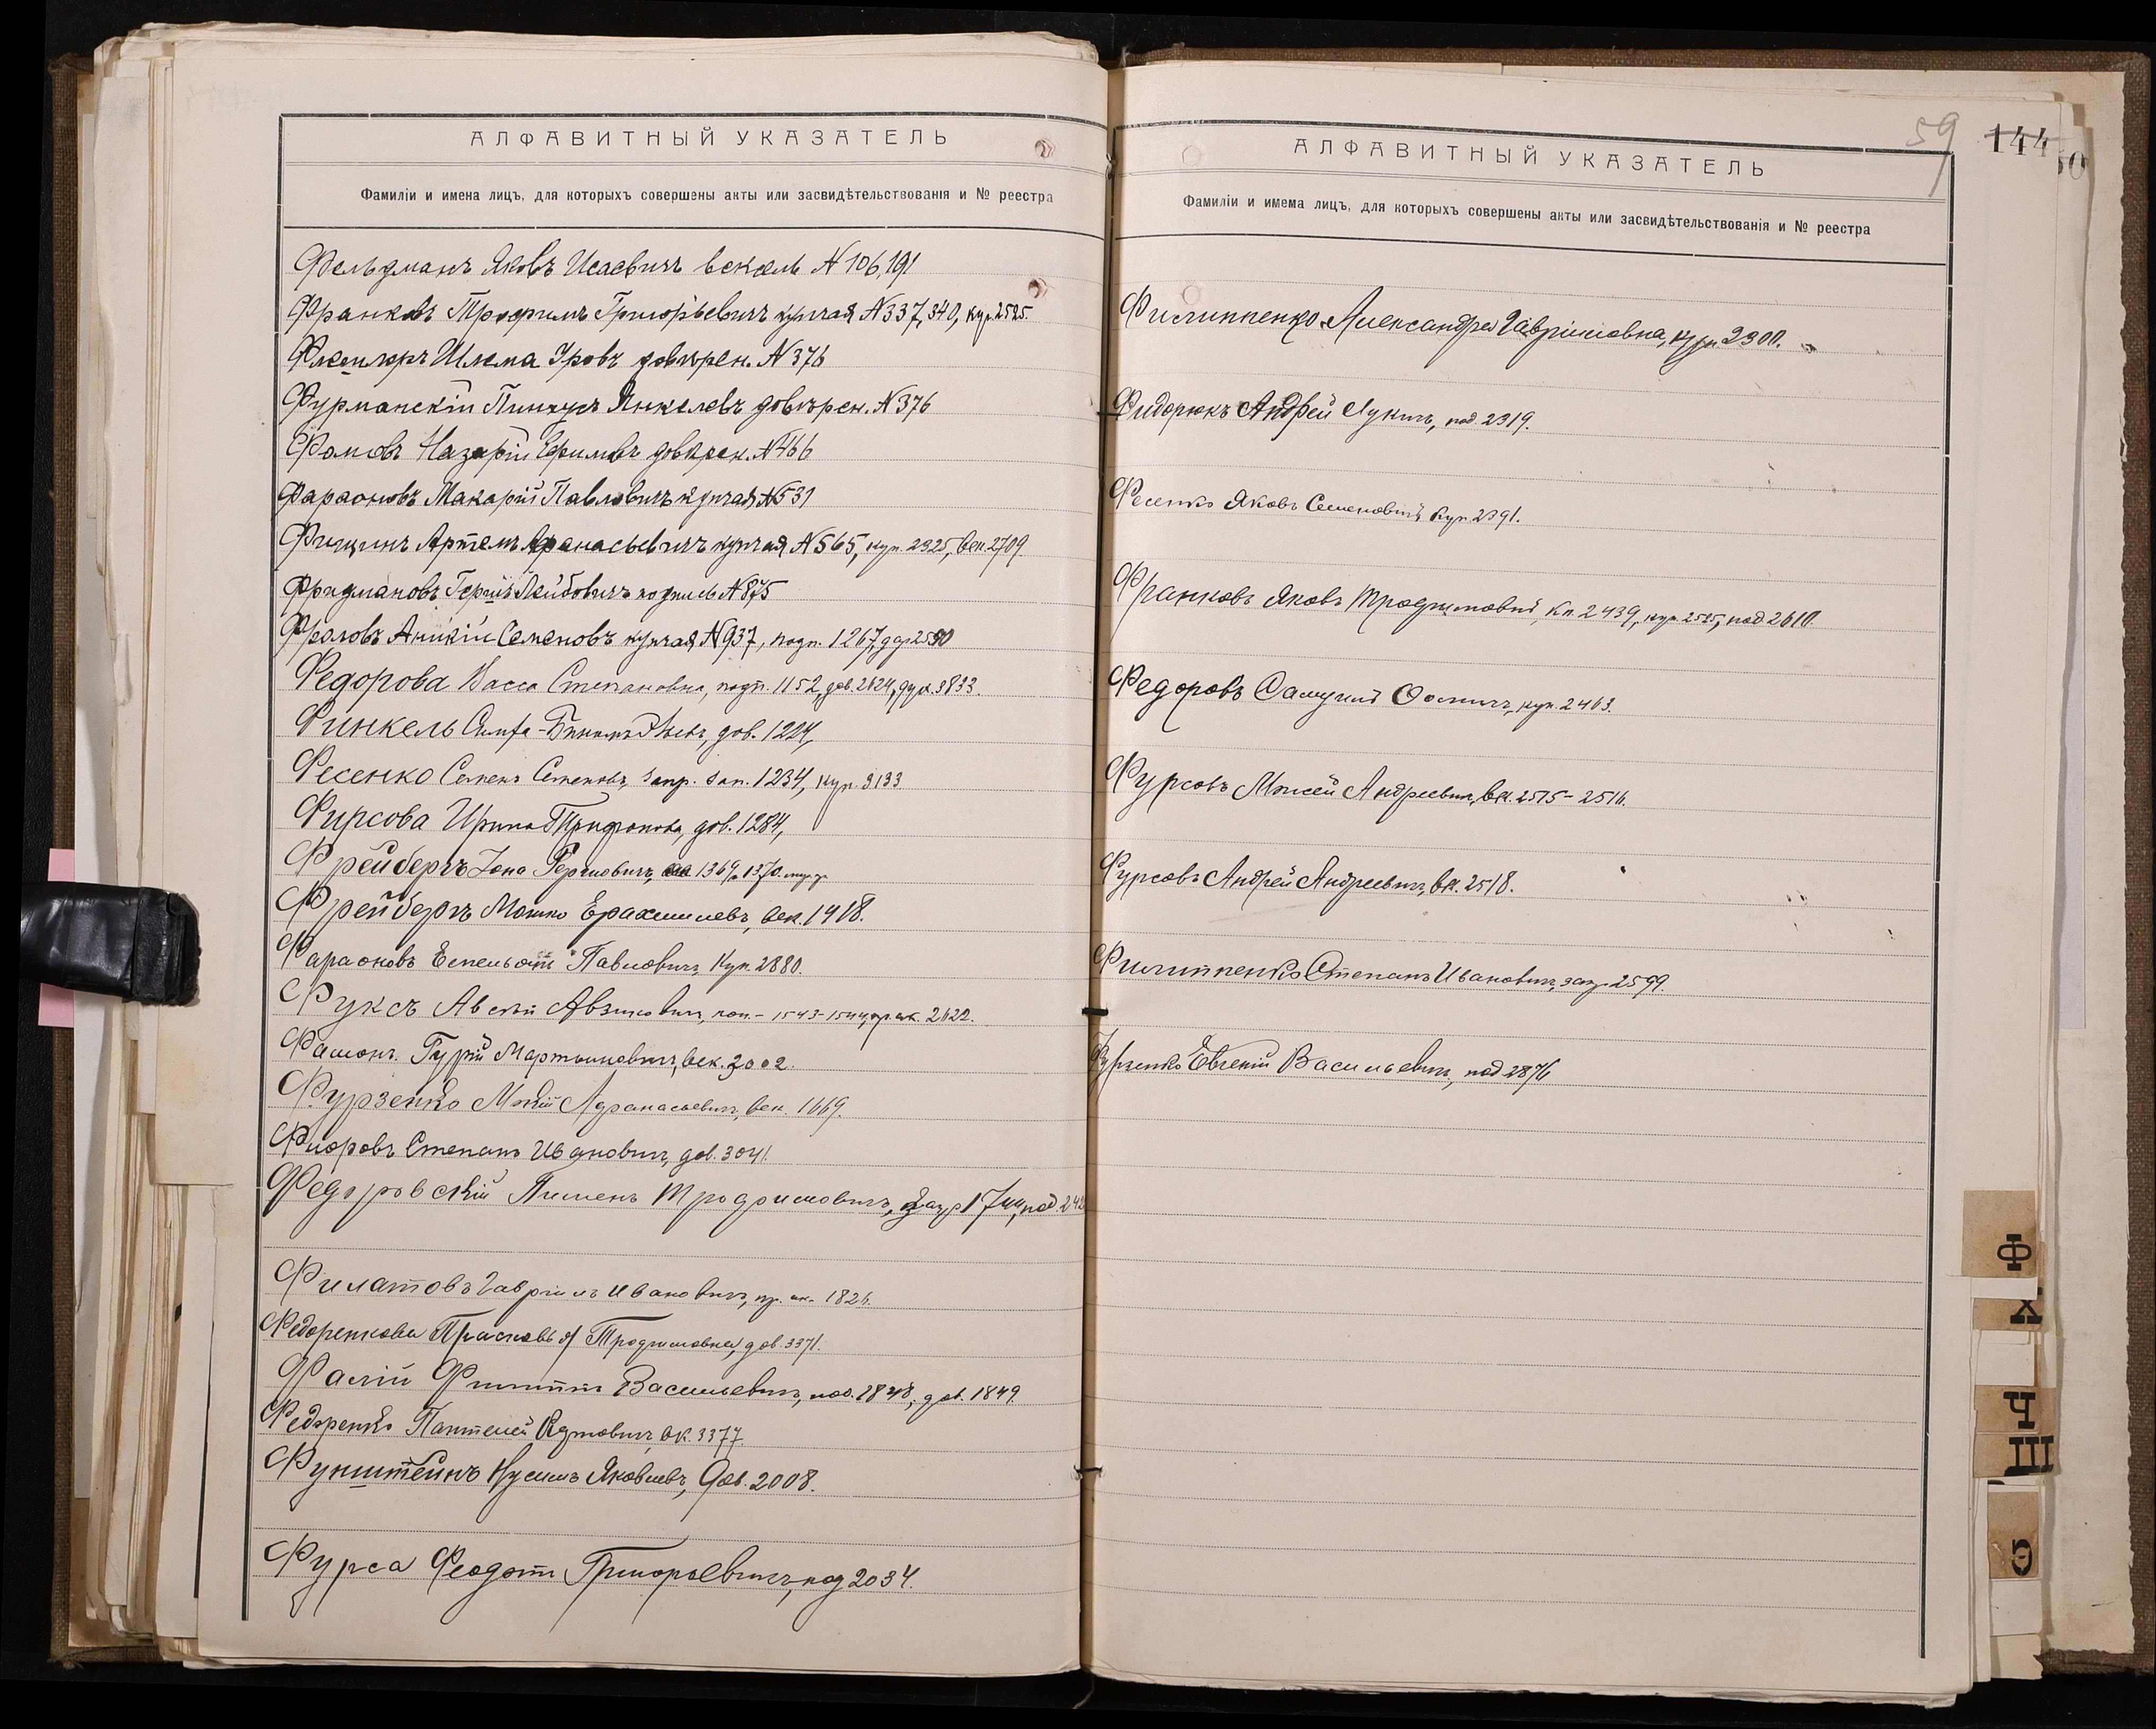 АЛФАВИТНЫЙ УКАЗАТЕЛЬ
Фамиліи и имена лицъ, для которыхъ совершены акты или засвидѣтельствованія и № реестра
Фельдманъ Яковъ Исаевичъ вексель N 106, 191
Франковъ Трофимъ Григорьевичъ купчая N 337, 340, куп. 2525.
Шлема довѣрен. N 376
Фурманскій Пинкусъ Янкелевъ довѣрен. N 376
Фомовъ Назарій Ефимовъ довѣрен. N 466
Фараоновъ Макарій Павловичъ купчая N 531
Фицинъ Артемъ Афанасьевичъ купчая N 565, куп. 2325, век. 2709
Фридмановъ Лейбовичъ подпись N 875
Фроловъ Аникій Семеновъ купчая N 937, подп. 1267,
Федорова Васса Степановна, подп. 1152, дов. 2624, 3833.
Финкель дов. 1224,
Фесенко Семенъ Семеновъ, 1234, куп. 3133
Фирсова Ирина Трифонова, дов. 1284,
Фрейбергъ Іона 1369, 1370.
Фрейбергъ Мошко век. 1418.
Фараоновъ Емельянъ Павловичъ, Куп. 2880.
Фуксъ коп. - 1543-1544, 2622.
Фамонъ. Гурій Мартыновичъ, век. 3002.
Фурзенко Афанасьевичъ, век. 1669.
Флоровъ Степанъ Ивановичъ, дов. 3041.
Федоровскій Пименъ Трофимовичъ,
Филатовъ Гавріилъ Ивановичъ, 1826.
Федоренкова Прасковья Трофимовна, дов. 3371.
Фалій Филиппъ Васильевичъ, дов. 1849.
Федоренко Пантелей вк. 3377
Фунштейнъ Нусимъ Яковлевъ, дов. 2008.
Фурса Феодотъ Григорьевичъ, под 2034.
59
144
АЛФАВИТНЫЙ УКАЗАТЕЛЬ
Фамиліи и имема лицъ, для которыхъ совершены акты или засвидѣтельствованія и № реестра
Филиппенко Александра Гавриловна, куп. 2300.
Фидорюкъ Андрей Лукичъ, под. 2319.
Фесенко Яковъ Семеновичъ куп. 2391.
Франковъ Яковъ Трофимовичъ, 2439, куп. 2525, под 2610
Федоровъ Самуилъ Осипичъ, куп. 2463.
Фурсовъ Моисей Андреевичъ, вк. 2515-2516.
Фурсовъ Андрей Андреевичъ, вк. 2518.
Филиппенко Степанъ Ивановичъ, 2599.
Евгеній Васильевичъ, под 2876
Ф
Х
Ч
Ш
Э